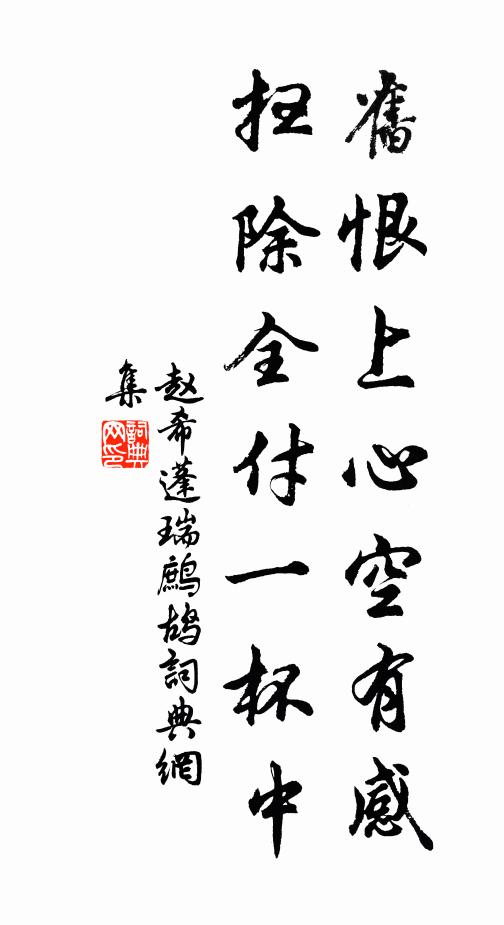 舊恨上心空有感
扫除全付一杯中
赵希蓬瑞鹧鸪詞典網
集
詞典
网印